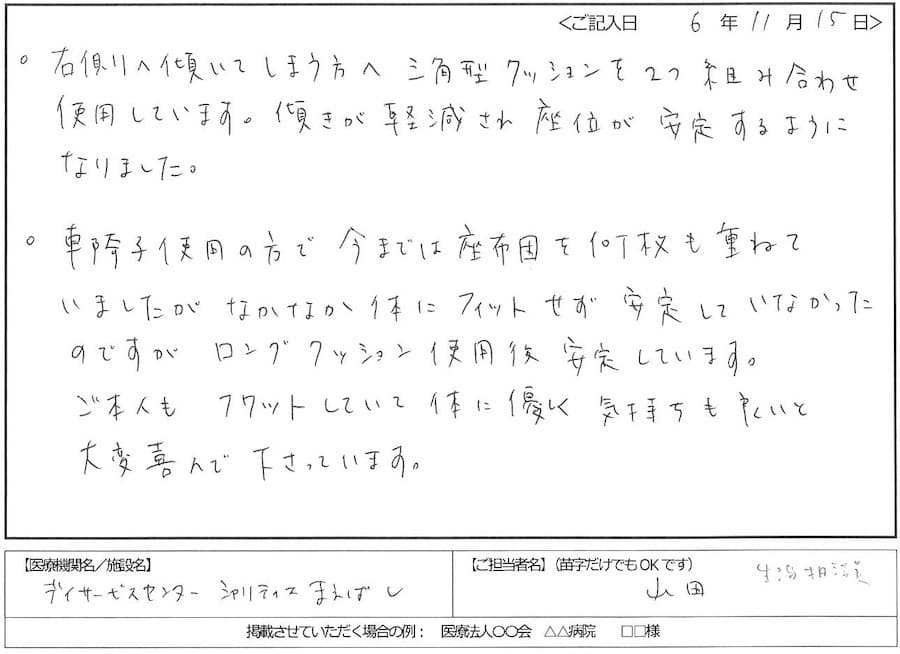 <ご記入日 6 年 11 月 15 日>
○ 右側りへ傾いてしまう方へ 三角型クッションを2つ 組み合わせ
使用しています。傾きが軽減され 座位が 安定するように
なりました。
○ 車椅子使用の方で 今までは座布団を何枚も重ねて
いましたが なかなか体に フィットせず 安定していなかった
のですが ロングクッション使用後 安定しています。
ご本人も フワットしていて 体に優しく 気持ちも良いと
大変喜んで下さっています。
【医療機関名/施設名】 【ご担当者名】(苗字だけでもOKです)
デイサービスセンター シャリティエ まえばし 山田 生活相談員
掲載させていただく場合の例: 医療法人○○会 △△病院 □□様